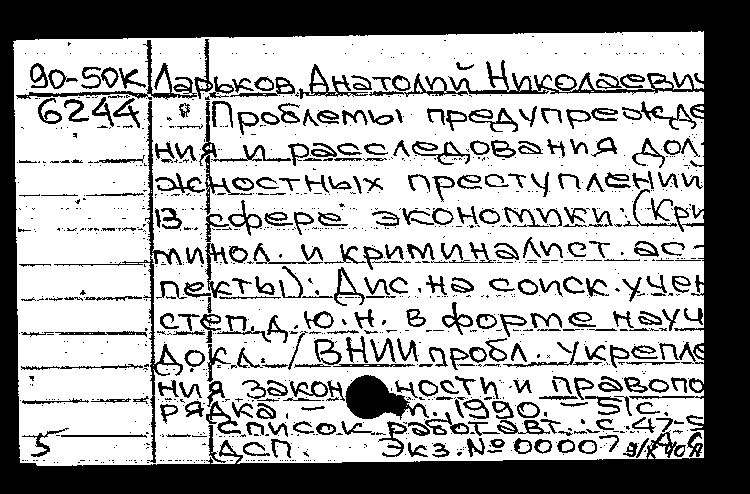 90-50К Ларьков, Анатолий Николаевич
6244 Проблемы предупрежде
ния и расследования дол-
жностных преступлений
в сфере экономики: (Кри
минол. и криминалист. ас-
пекты): Дис. на соиск. учен
степ. д.ю.н. в форме науч
докл. / ВНИИ пробл. укрепле
ния закон ности и правопо
рядка. – м., 1990. – 51с.
Список работ авт.: с. 47-5
5 ДСП. Экз. № 00007